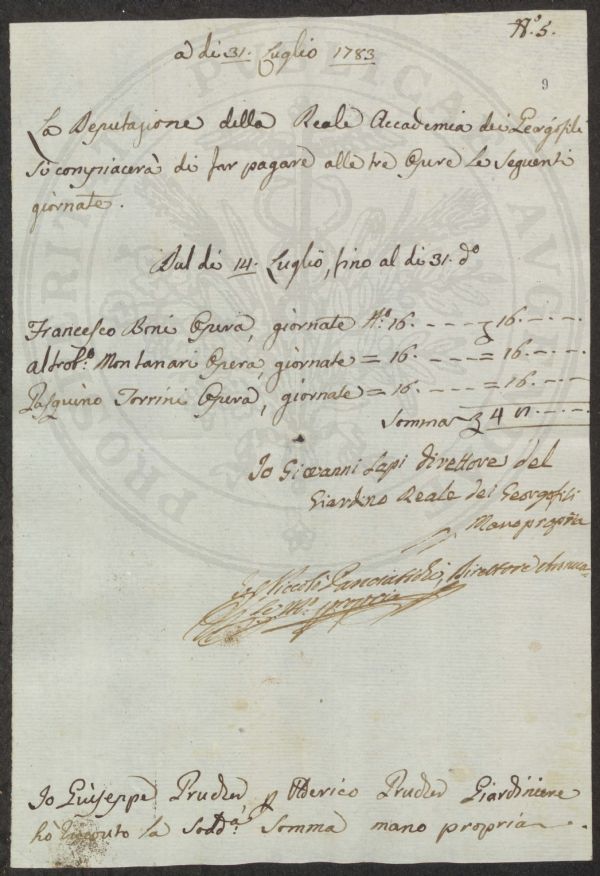 N.o 5.
a di 31. Luglio 1783
9
La Deputazione della Reale Accademia dei Georgofili
si compiacerà di far pagare alle tre Opere le seguenti
giornate.
Dal di 14. Luglio, fino al di 31. do
Francesco Boni Opera, giornate N.o 16. - - - - 16. - - -
Montanari Opera, giornate = 16. - - - - = 16. - - -
Pasquino Torrini Opera, giornate = 16. - - - - = 16. - - -
Somma
Io Giovanni Lapi Direttore del
Giardino Reale dei Georgofili
Mano propria
Direttore Annua-
le M.o propria
Io Giuseppe Prucker p Oderico Prucker Giardiniere
ho ricevuto la Sodd.a Somma mano propria
PROSPERITATI PUBLICAE AUGENDAE